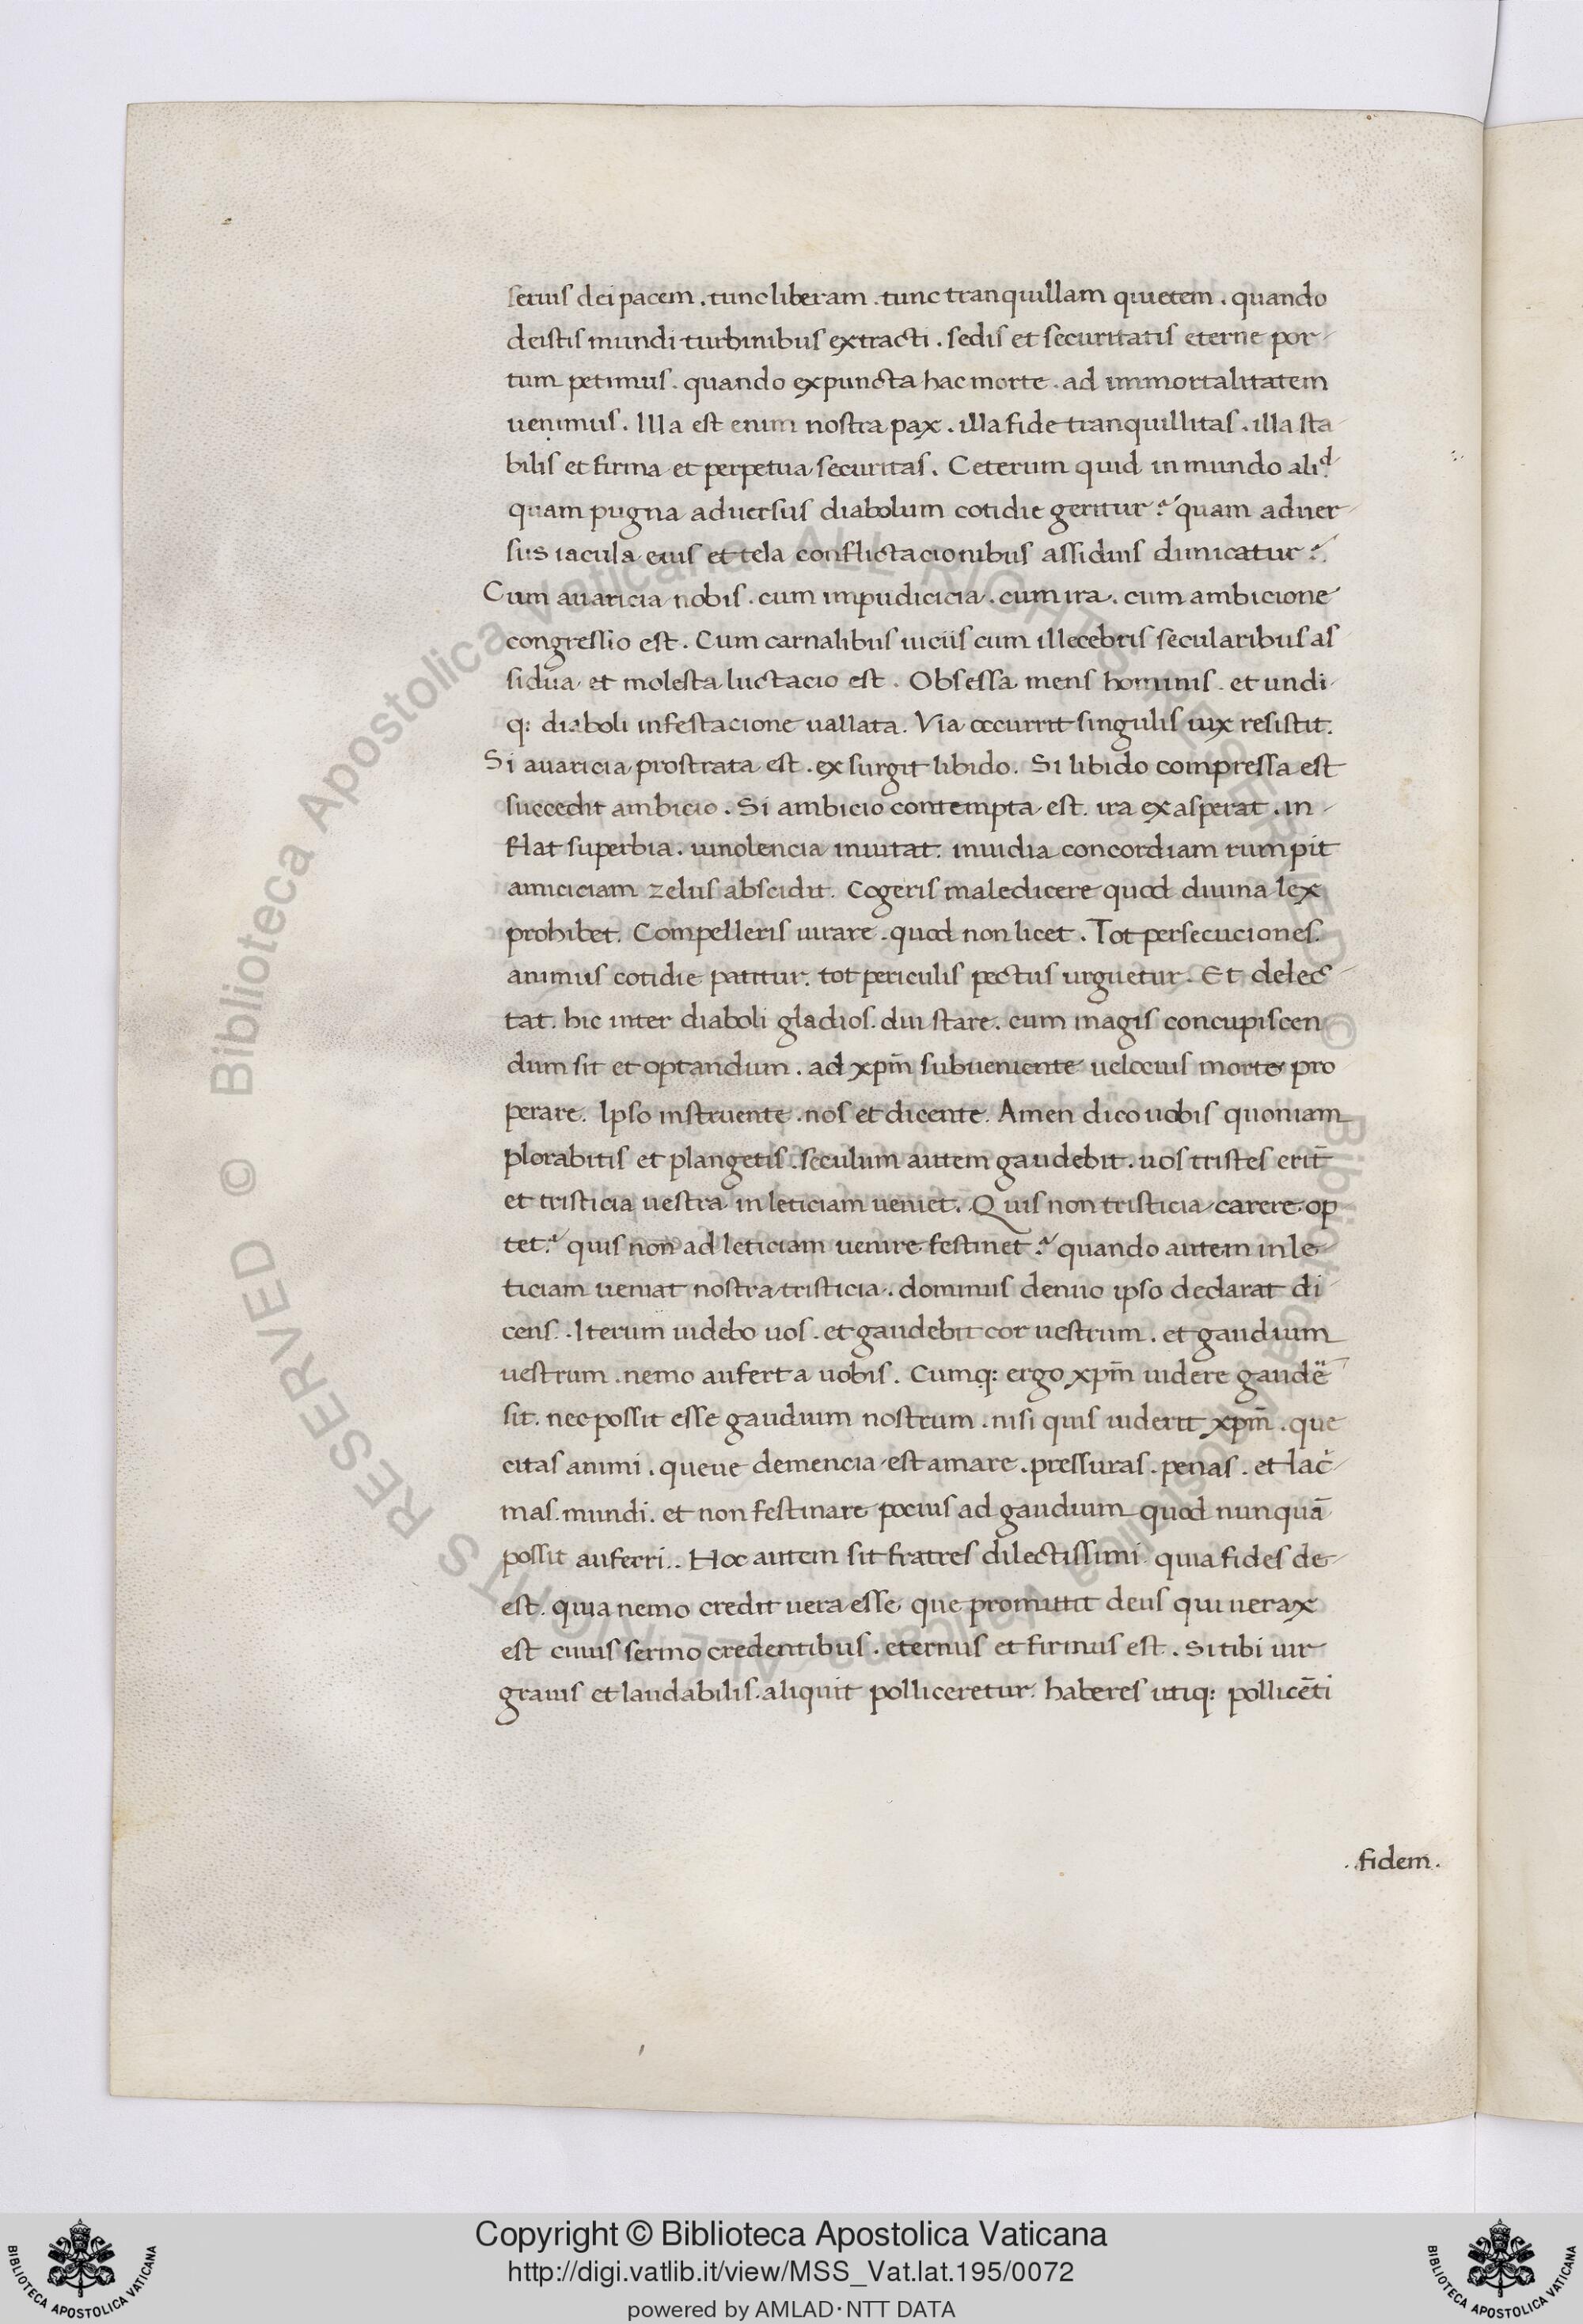 seruis dei pacem . tunc liberam . tunc tranquillam quietem . quando
deistis mundi turbinibus extracti . sedis et securitatis eterne por-
tum petimus . quando expuncta hac morte . ad immortalitatem
uenimus . Illa est enim nostra pax . illa fide tranquillitas . illa sta
bilis et firma et perpetua securitas . Ceterum quid in mundo aliᵈ
quam pugna aduersus diabolum cotidie geritur ? quam aduer-
sus iacula eius et tela conflictacionibus assiduis dimicatur ?
Cum auaricia nobis . cum impudicicia . cum ira . cum ambicione
congressio est . Cum carnalibus uiciis cum illecebris secularibus as
sidua et molesta luctacio est . Obsessa mens hominis . et undi
q: diaboli infestacione uallata . Via occurrit singulis uix resistit .
Si auaricia prostrata est . exsurgit libido . Si libido compressa est
succedit ambicio . Si ambicio contempta est . ira exasperat . in-
flat superbia . uinolencia inuitat . inuidia concordiam rumpit
amiciciam zelus abscidit . Cogeris maledicere quod diuina lex
prohibet . Compelleris iurare . quod non licet . Tot persecuciones .
animus cotidie patitur . tot periculis pectus urguetur . Et delec-
tat . hic inter diaboli gladios . diu stare . cum magis concupiscen
dum sit et optandum . ad xp̄m subueniente uelocius morte pro
perare . Ipso instruente . nos et dicente . Amen dico uobis quoniam
plorabitis et plangetis . seculum autem gaudebit . uos tristes erit̄
et tristicia uestra in leticiam ueniet . Quis non tristicia carere op
tet ? quis non ad leticiam uenire festinet ? quando autem in le-
ticiam ueniat nostra tristicia . dominus denuo ipso declarat di
cens . Iterum uidebo uos . et gaudebit cor uestrum . et gaudium
uestrum . nemo aufert a uobis . Cumq: ergo xp̄m uidere gaudē
sit . nec possit esse gaudium nostrum . nisi quis uiderit xp̄m . que
citas animi . queue demencia est amare . pressuras . penas . et lac̄-
mas . mundi . et non festinare pocius ad gaudium quod nunquā
possit auferri .. Hoc autem sit fratres dilectissimi quia fides de-
est . quia nemo credit uera esse que promittit deus qui uerax
est cuius sermo credentibus . eternus et firmus est . Si tibi uir
grauis et laudabilis . aliquit polliceretur . haberes utiq: pollicēti
. fidem .
© Biblioteca Apostolica Vaticana ALL RIGHTS RESERVED © Biblioteca Apostolica Vaticana ALL RIGHTS RESERVED
Copyright © Biblioteca Apostolica Vaticana
http://digi.vatlib.it/view/MSS_Vat.lat.195/0072
powered by AMLAD·NTT DATA
BIBLIOTECA APOSTOLICA VATICANA
BIBLIOTECA APOSTOLICA VATICANA